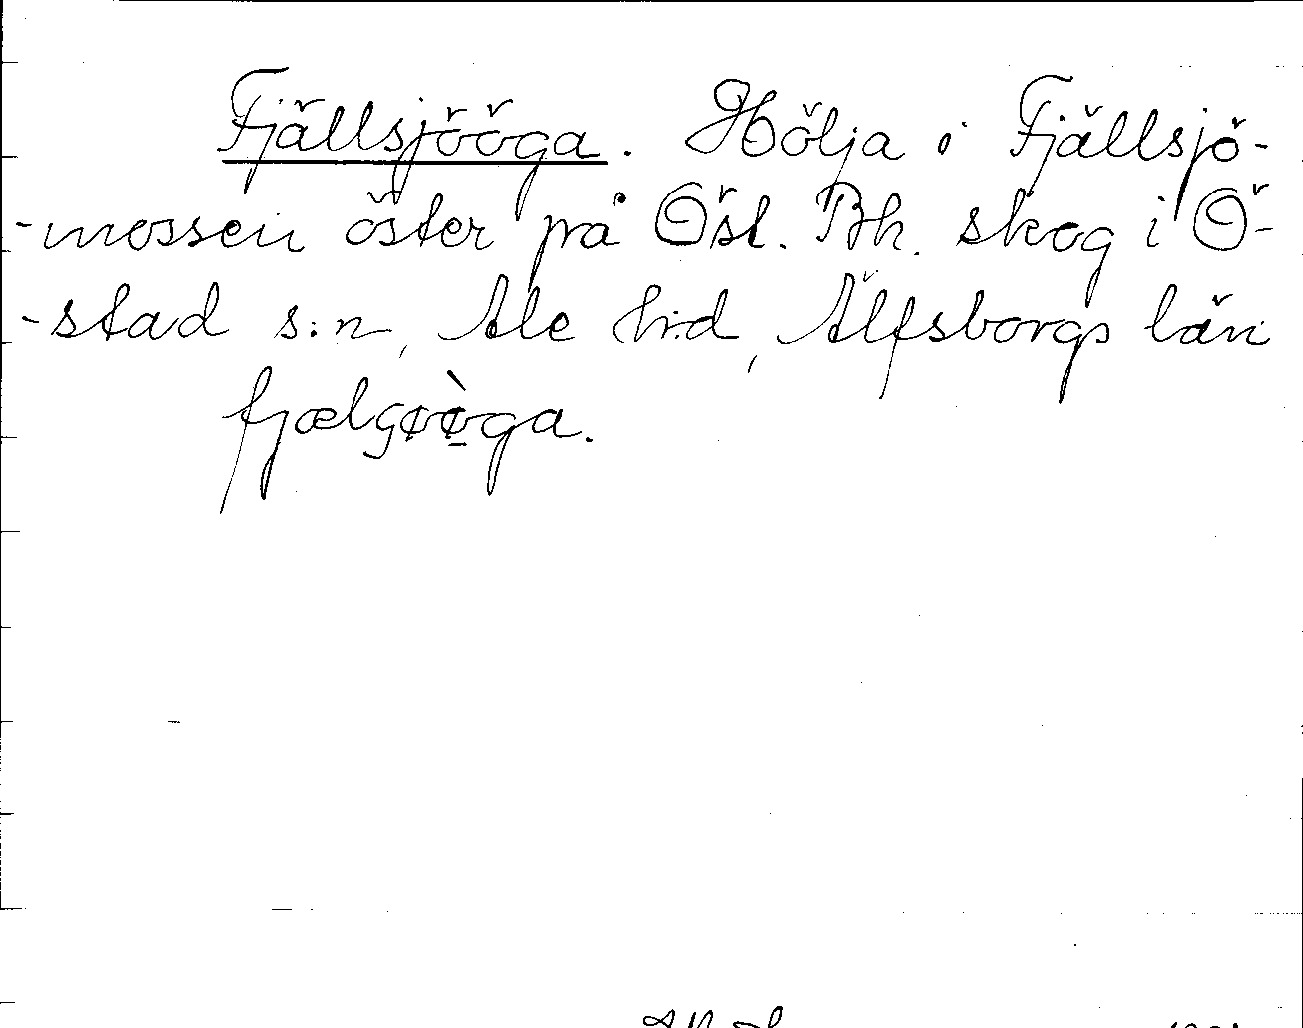 Fjällsjööga. Hölja i Fjällsjö-
-mossen öster på Östl. Bh. skog i Ö-
-stad s:n, Ale h:d, Älfsborgs län
fjælɕøø̀ga.